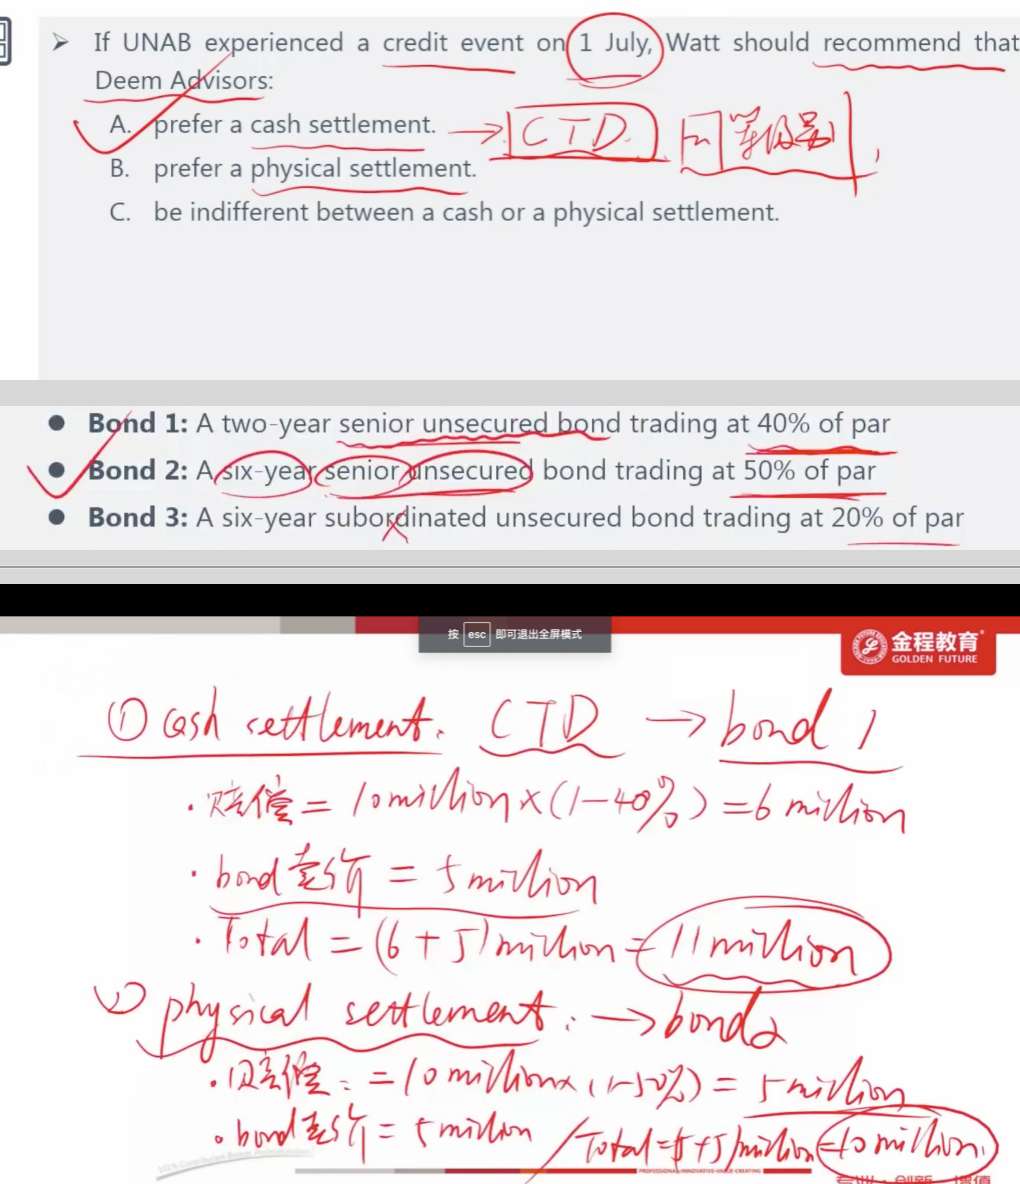 ➢ If UNAB experienced a credit event on 1 July, Watt should recommend that
Deem Advisors:
A. prefer a cash settlement. → CTD. 同等级别
B. prefer a physical settlement.
C. be indifferent between a cash or a physical settlement.
● Bond 1: A two-year senior unsecured bond trading at 40% of par
● Bond 2: A six-year senior unsecured bond trading at 50% of par
● Bond 3: A six-year subordinated unsecured bond trading at 20% of par
按 esc 即可退出全屏模式
金程教育
GOLDEN FUTURE
① cash settlement. CTD → bond 1
· 赔偿 = 10 million × (1-40%) = 6 million
· bond 卖价 = 5 million
· Total = (6+5) million = 11 million
② physical settlement: → bond2
· 赔偿: = 10 million × (1-50%) = 5 million
· bond 卖价 = 5 million / Total = (5+5) million = 10 million.
专业·创新·增值